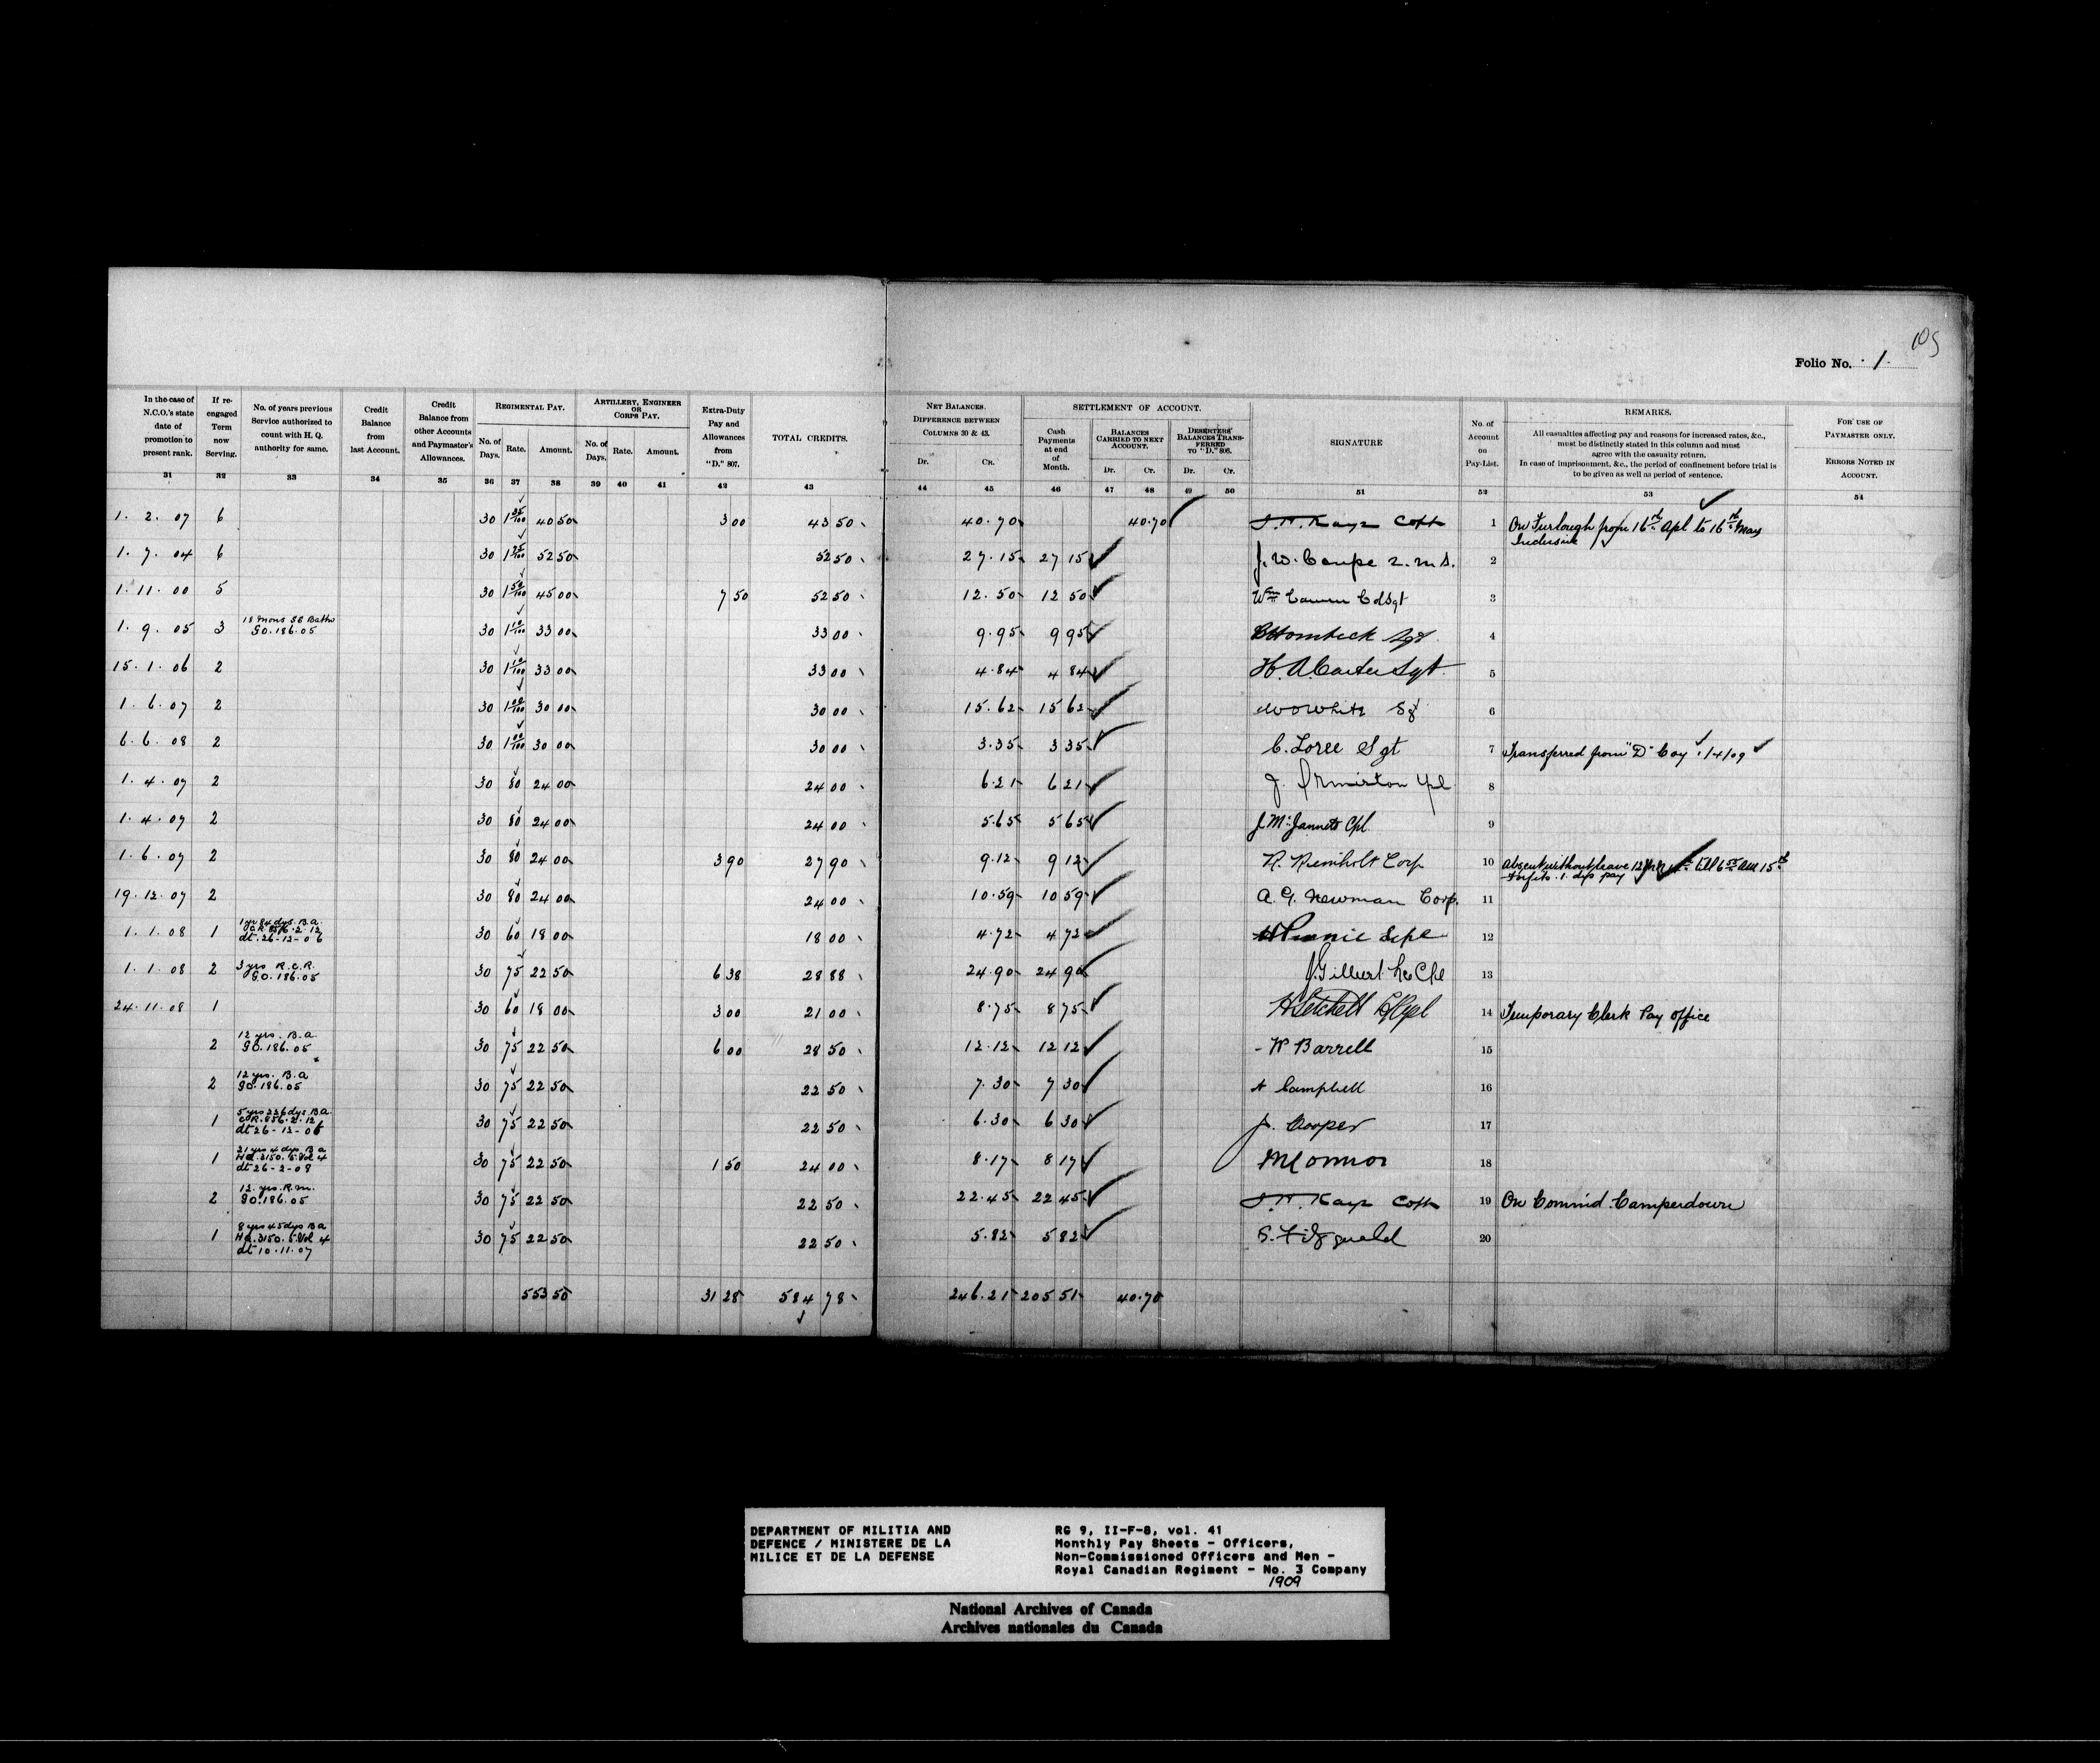 105
Folio No. 1.
In the case of N.C.O.'s state date of promotion to present rank.
If re-engaged Term now Serving.
No. of years previous Service authorized to count with H. Q. authority for same.
Credit Balance from last Account.
Credit Balance from other Accounts and Paymaster's Allowances.
REGIMENTAL PAY.
No. of Days. Rate. Amount.
ARTILLERY, ENGINEER OR CORPS PAY.
No. of Days. Rate. Amount.
EXTRA-DUTY PAY AND ALLOWANCES FROM "D." 807.
TOTAL CREDITS.
NET BALANCES. DIFFERENCE BETWEEN COLUMNS 30 & 43.
Dr. CR.
SETTLEMENT OF ACCOUNT.
Cash Payments at end of Month.
BALANCES CARRIED TO NEXT ACCOUNT.
Dr. Cr.
DESERTERS' BALANCES TRANSFERRED TO "D." 806.
Dr. Cr.
SIGNATURE
No. of Account on Pay-List.
REMARKS.
All casualties affecting pay and reasons for increased rates, &c.,
must be distinctly stated in this column and must
agree with the casualty return.
In case of imprisonment, &c., the period of confinement before trial is
to be given as well as period of sentence.
FOR USE OF PAYMASTER ONLY.
ERRORS NOTED IN ACCOUNT.
31 32 33 34 35 36 37 38 39 40 41 42 43 44 45 46 47 48 49 50 51 52 53 54
1. 2. 07 6 30 1 35/100 40 50 3 00 43 50 40.70 40.70 1 On Furlough from 16th Apl to 16th May
Inclusive
1. 7. 04 6 30 1 75/100 52 50 52 50 27.15 27 15 J. W. Coupe Q.M.S. 2
1. 11. 00 5 30 1 50/100 45 00 7 50 52 50 12.50 12 50 Wm ColSgt 3
1. 9. 05 3 18 mons SS Battn
GO. 186.05 30 1 10/100 33 00 33 00 9.95 9 95 Hornbeck Sgt 4
15. 1. 06 2 30 1 10/100 33 00 33 00 4.84 4 84 H. A. Carter Sgt 5
1. 6. 07 2 30 1 00/100 30 00 30 00 15.62 15 62 White Sgt 6
6. 6. 08 2 30 1 00/100 30 00 30 00 3.35 3 35 C. Loree Sgt 7 Transferred from "D" Coy 1/4/09
1. 4. 07 2 30 80 24 00 24 00 6.21 6 21 J. Ormiston Cpl 8
1. 4. 07 2 30 80 24 00 24 00 5.65 5 65 J McJannett Cpl 9
1. 6. 07 2 30 80 24 00 3 90 27 90 9.12 9 12 R. Reinholt Corp 10 Absent without leave 12 till 6 AM 15th
Forfeits 1 dys pay
19. 12. 07 2 30 80 24 00 24 00 10.59 10 59 A. G. Newman Corp. 11
1. 1. 08 1 1 yr 84 dys. B.A.
C.R. 856.2.12
dt. 26-12-06 30 60 18 00 18 00 4.72 4 72 12
1. 1. 08 2 3 yrs R.C.R.
GO. 186.05 30 75 22 50 6 38 28 88 24.90 24 90 J. Gilbert Le Cpl 13
24. 11. 08 1 30 60 18 00 3 00 21 00 8.75 8 75 14 Temporary Clerk Pay Office
2 12 yrs. B.A
GO. 186.05 30 75 22 50 6 00 28 50 12.12 12 12 W Barrell 15
2 12 yrs. B.A
GO. 186.05 30 75 22 50 22 50 7.30 7 30 A Campbell 16
1 5 yrs 226 dys. BA
C.R. 856.2.12
dt 26-12-06 30 75 22 50 22 50 6.30 6 30 J. Cooper 17
1 21 yrs 4 dys B A
HQ. 3150.5 Vol 4
dt 26-2-08 30 75 22 50 1 50 24 00 8.17 8 17 M Connor 18
2 12. yrs. R.M.
GO. 186.05 30 75 22 50 22 50 22.45 22 45 19 On Commd. Camperdown
1 8 yrs 45 dys BA
HQ. 3150.5 Vol 4
dt 10.11.07 30 75 22 50 22 50 5.82 5 82 S. Fitzgerald 20
553 50 31 28 584 78 246.21 205 51 40.70
DEPARTMENT OF MILITIA AND
DEFENCE / MINISTERE DE LA
MILICE ET DE LA DEFENSE
RG 9, II-F-8, vol. 41
Monthly Pay Sheets - Officers,
Non-Commissioned Officers and Men -
Royal Canadian Regiment - No. 3 Company
1909
National Archives of Canada
Archives nationales du Canada